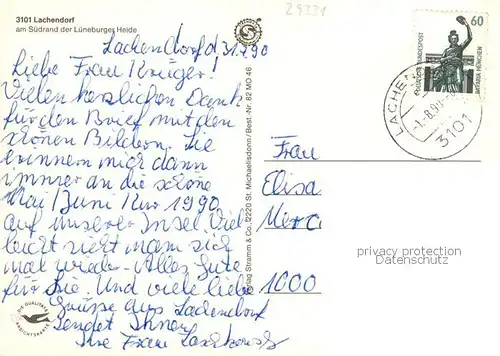 3101 Lachendorf
am Südrand der Lüneburger Heide
29331
Lachendorf d 31.7.90
Liebe Frau Krüger!
Vielen herzlichen Dank
für den Brief mit den
schönen Bildern. Sie
erinnern mich dann
immer an die schöne
Mai/Juni Kur 1990
auf unserer Insel. Viel
leicht sieht mam sich
mal wieder. Alles Gute
für Sie. Und viele liebe
Grüsse aus Lachendorf
sendet Ihnen
Ihre Frau
Verlag Stramm & Co., 2220 St. Michaelisdonn / Best.-Nr. 82 MO 46
DIE QUALITÄTS
ANSICHTSKARTE
60
DEUTSCHE BUNDESPOST
BAVARIA MÜNCHEN
LACHEN
-1.-8.90
3101
Frau
Elisa
Merci
1000
privacy protection
Datenschutz